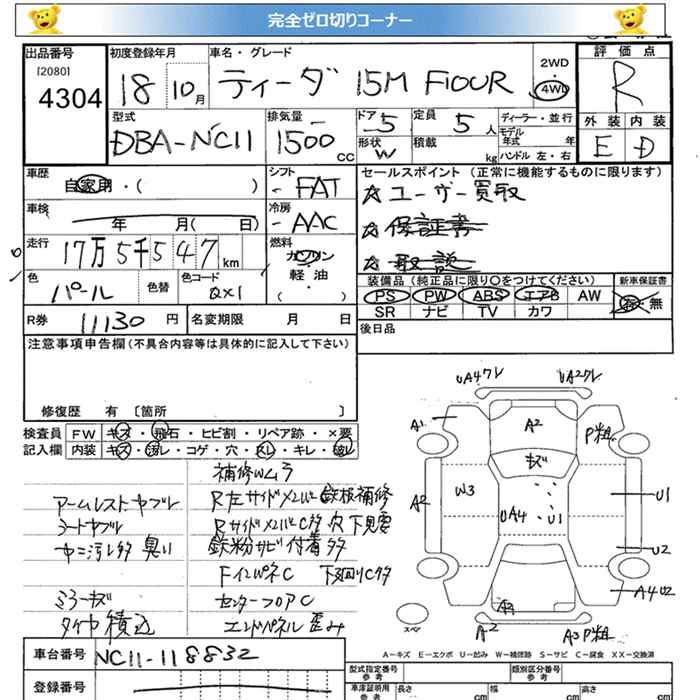 完全ゼロ切りコーナー
出品番号
[2080]
4304
初度登録年月
18 10月
車名・グレード
ティーダ 15M FIOUR
2WD
4WD
評価点
R
型式
DBA-NC11
排気量
1500 CC
ドア
5
形状
W
定員
5 人
積載
kg
ディーラー・並行
モデル年式 年
ハンドル 左・右
外装 内装
E D
車歴
自家用・( )
シフト
FAT
車検
年 月( 日)
冷房
AAC
走行
17万5千547 km
燃料
ガソリン
軽油
( )
色
パール
色替
色コード
QX1
セールスポイント (正常に機能するものに限ります)
☆ユーザー買取
☆保証書
☆取説
装備品 (純正品に限り○をつけてください)
PS PW ABS エアB AW
SR ナビ TV カワ
新車保証書
有・無
R券 11130 円
名変期限 月 日
後日品
注意事項申告欄(不具合内容等は具体的に記入して下さい)
修復歴 有 〔箇所 〕
検査員記入欄
FW キズ・飛石・ヒビ割・リペア跡・×要
内装 キズ・汚レ・コゲ・穴・スレ・キレ・破レ
補修Wムラ
アームレストヤブレ R左サイドメンバー鉄板補修
シートヤブレ RサイドメンバーC多穴下見要
ヤニ汚レ多臭い 鉄粉サビ付着多
FインパネC 下回りC多
ミラーキズ センターフロアC
タイヤ積込 エンドパネル歪み
UA4ワレ UA2ワレ
A1 A2 P粗
キズ
A2 W3 UA4 U1 U1
U2
A3 A4U2
スペア
A2 A3P粗
A-キズ E-エクボ U-凹み W-補修跡 S-サビ C-腐食 XX-交換済
車台番号 NC11-118832
登録番号
型式指定番号
参考
類別区分番号
参考
車庫証明用
参考
長さ cm
幅 cm
高さ cm